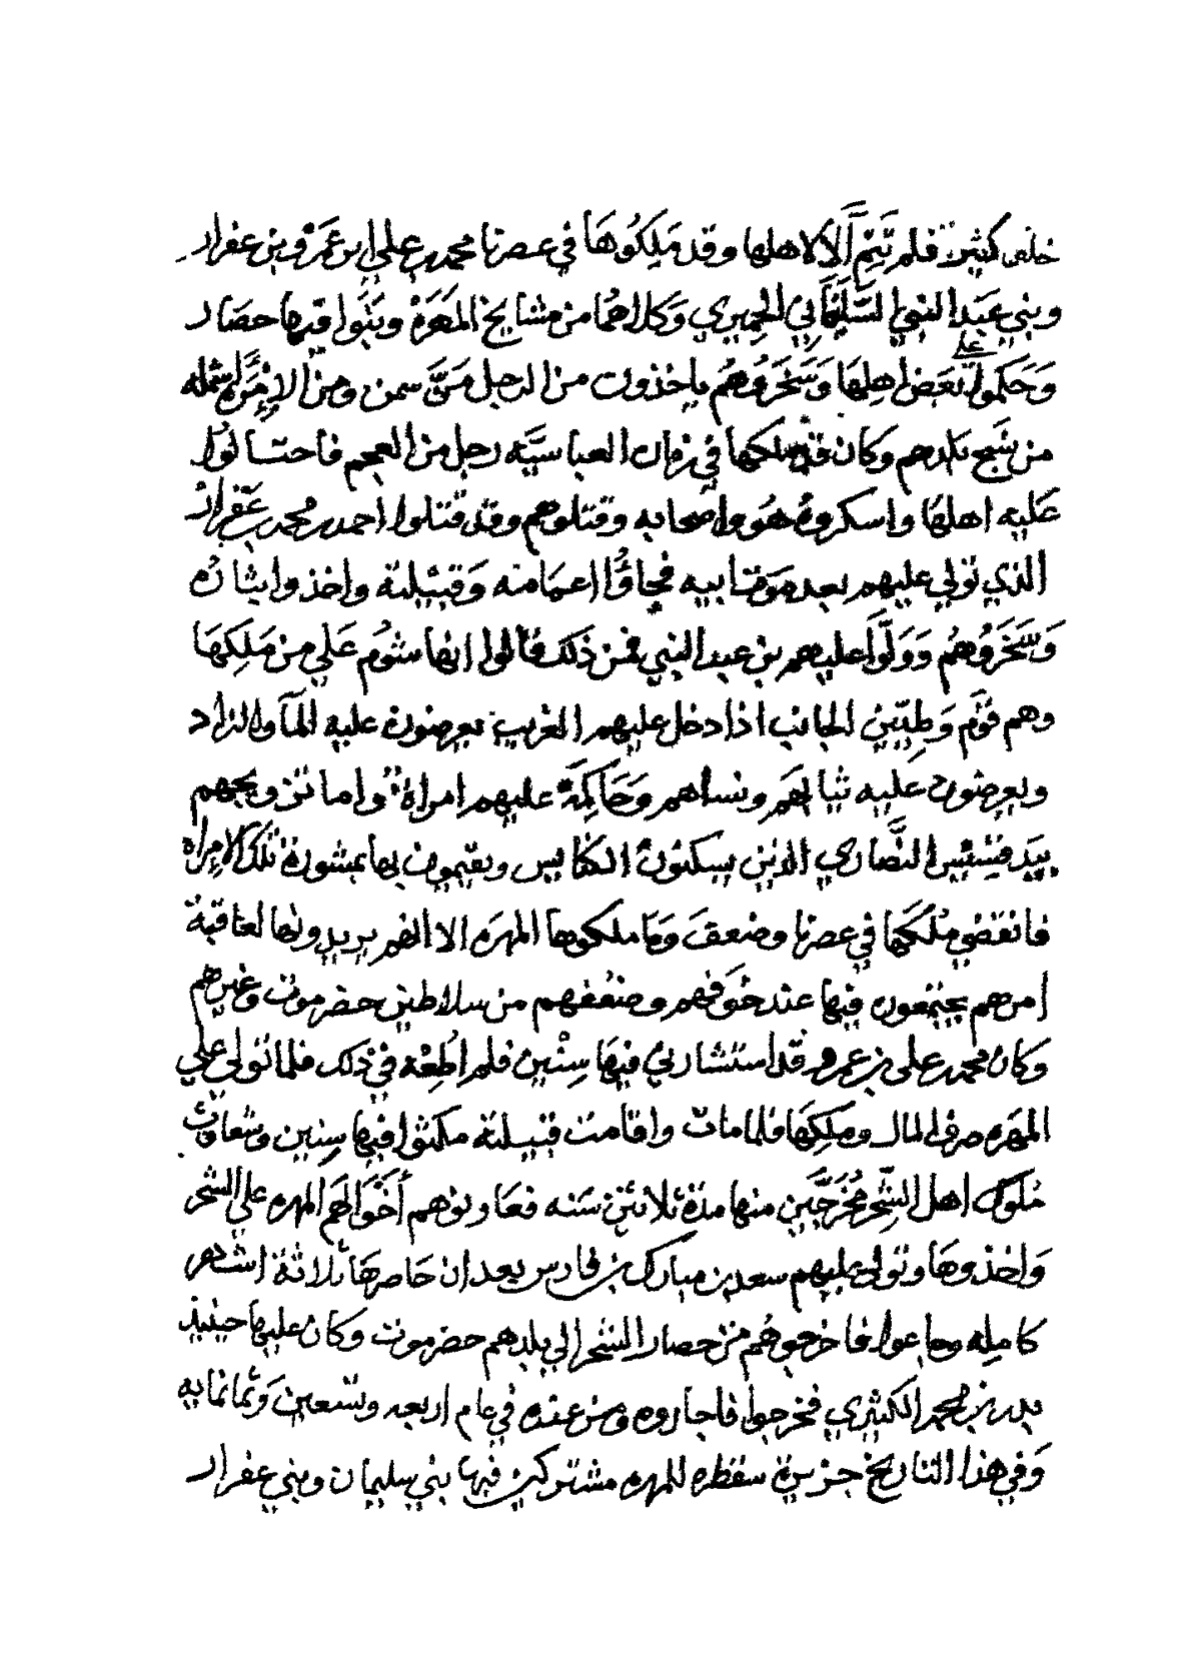 خلق كثير فلم تَتِمّ إلّا لاهلها وقد مَلِكُوهَا في عصرنا محمد بن علي ابن عَمَرْو بن عفرار
وبني عَبَد النبي السَّلَيْمَاني الحِمِيري وَكلاهُمَا من مشايخ المَهَرَة وبَنَوا فيها حصار
وَحَكموا على بَعَض اهلِهَا وَسَخَرَوُهُم ياخذون من الرجل مَنّ سمن ومن الإمْرَاه شمله
من نسج بلدهم وكان قد ملكها في زمان العباسيَّه رجل من العجم فاحتالوا
عَليه اهلهَا واسكروهُ هُوَ واصحابه وقتلوهم وقد قتلوا احمد بن محمد بن عَفرار
الذي تولي عليهم بعد مَوت ابيه فجاؤُا اعمامه وَقبيلته واخذوا بثاره
وَسَّخَرَوُهُم وَوَلَّوَا عليهم بن عبد النبي فمن ذَلك قالوا انها شوُم عَلي من مَلِكِهَا
وهم قوَم وَطِيّين الجانب اذا دخل عليهم الغريب يعرضون عليه المآ والزاد
ويعرضون عليه ثيابَهَم ونساهم وَحَاكِمَةٌ عليهم امراة واما تزويجهم
بِيَد قِسّيس النَّصاري الذين يسكنون الكنايس ويقيمون بها بمشورة تلك الامِراه
فانقضي مُلكَهَا في عصرنا وضعفَ وَمَا ملكوها المهره الا انهم يريدونها لعاقبة
امرهم يجتمعون فيها عند خوَفهم وضعفهم من سلاطين حضرموت وغيرهم
وكان محمد بن علي بن عمرو قد استشارني فيهَا سِنْين فلم اطِعْه في ذلك فلما تولي علي
المهَره صرف المال ومَلِكِهَا فلما مات واقامت قبيلته مكثوا فيها سِنِين وشعاوت
مُلوك اهل الشِّحر مُخرَجّين منها مدة ثلاثين سَنه فعَاونوهم أخَوَالهم المهره علي الشحر
وَاخذوهَا وتولي عليهم سعد بن مبارك بن فارس بعد ان حَاصرهَا ثلاثة اشهر
كامِله وجاعوا فاخرجوهُم من حصار الشحر الي بلدهم حضرموت وكان عليها حينيذ
بدر بن محمد الكثيري فخرجوا فاجاروه ومن عنده في عام اربعه وتسعين وَثمانمايه
وَفي هذا التاريخ جزيرة سقطره للمهره مشتركين فيها بني سليمان وبني عفرار